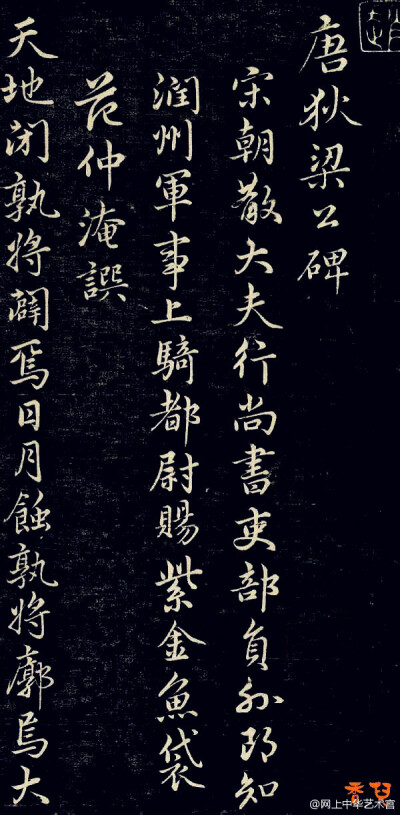 唐狄梁公碑
宋朝散大夫行尚書吏部員外郎知
潤州軍事上騎都尉賜紫金魚袋
范仲淹譔
天地閉孰將闢焉日月蝕孰將廓焉大
@网上中华艺术宫